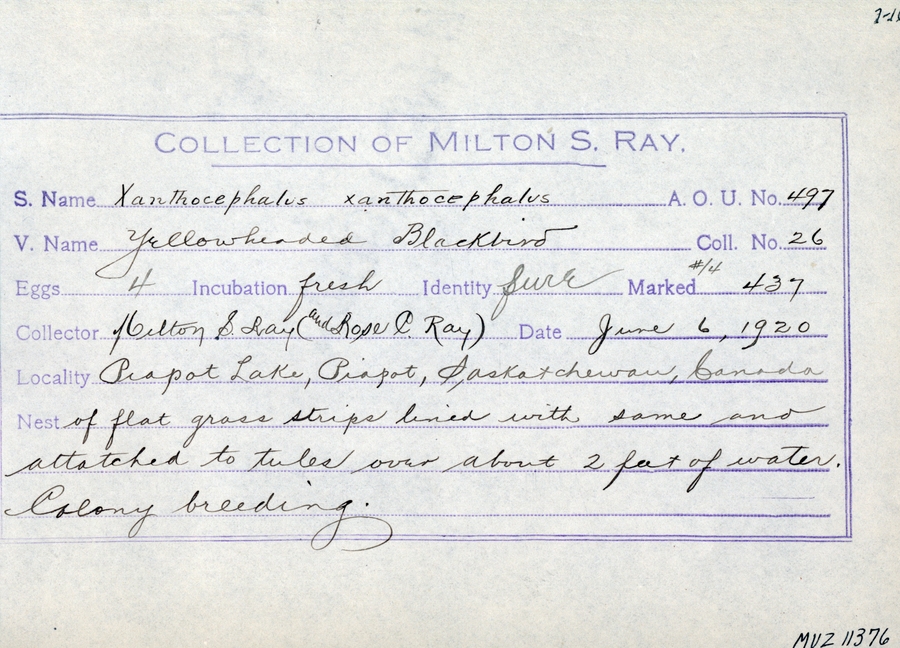 COLLECTION OF MILTON S. RAY.
S. Name Xanthocephalus xanthocephalus A. O. U. No. 497
V. Name Yellowheaded Blackbird Coll. No. 26
Eggs 4 Incubation fresh Identity sure Marked #14 437
Collector Milton S. Ray (and Rose C. Ray) Date June 6, 1920
Locality Piapot Lake, Piapot, Saskatchewan, Canada
Nest of flat grass strips lined with same and
attatched to tules over about 2 feet of water.
Colony breeding.
MVZ 11376